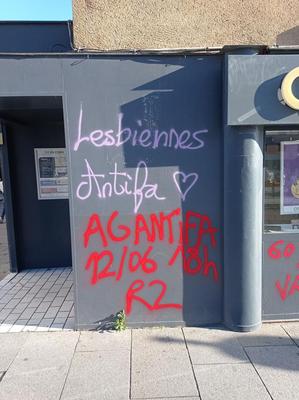 Lesbiennes
Antifa ♡
AG ANTIFA
12/06 18h
R2
60
VA